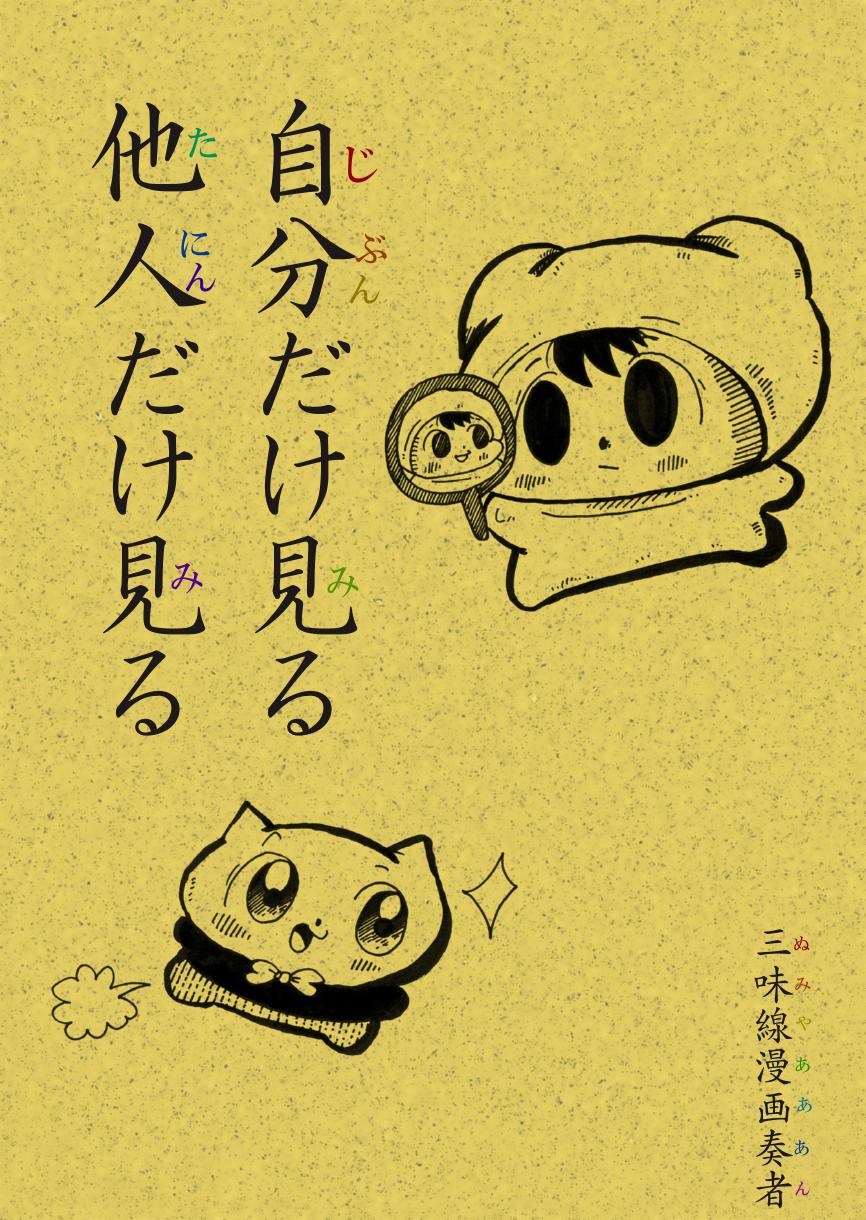 自分だけ見る
じぶん み
他人だけ見る
たにん み
三味線漫画奏者
ぬみやあああん